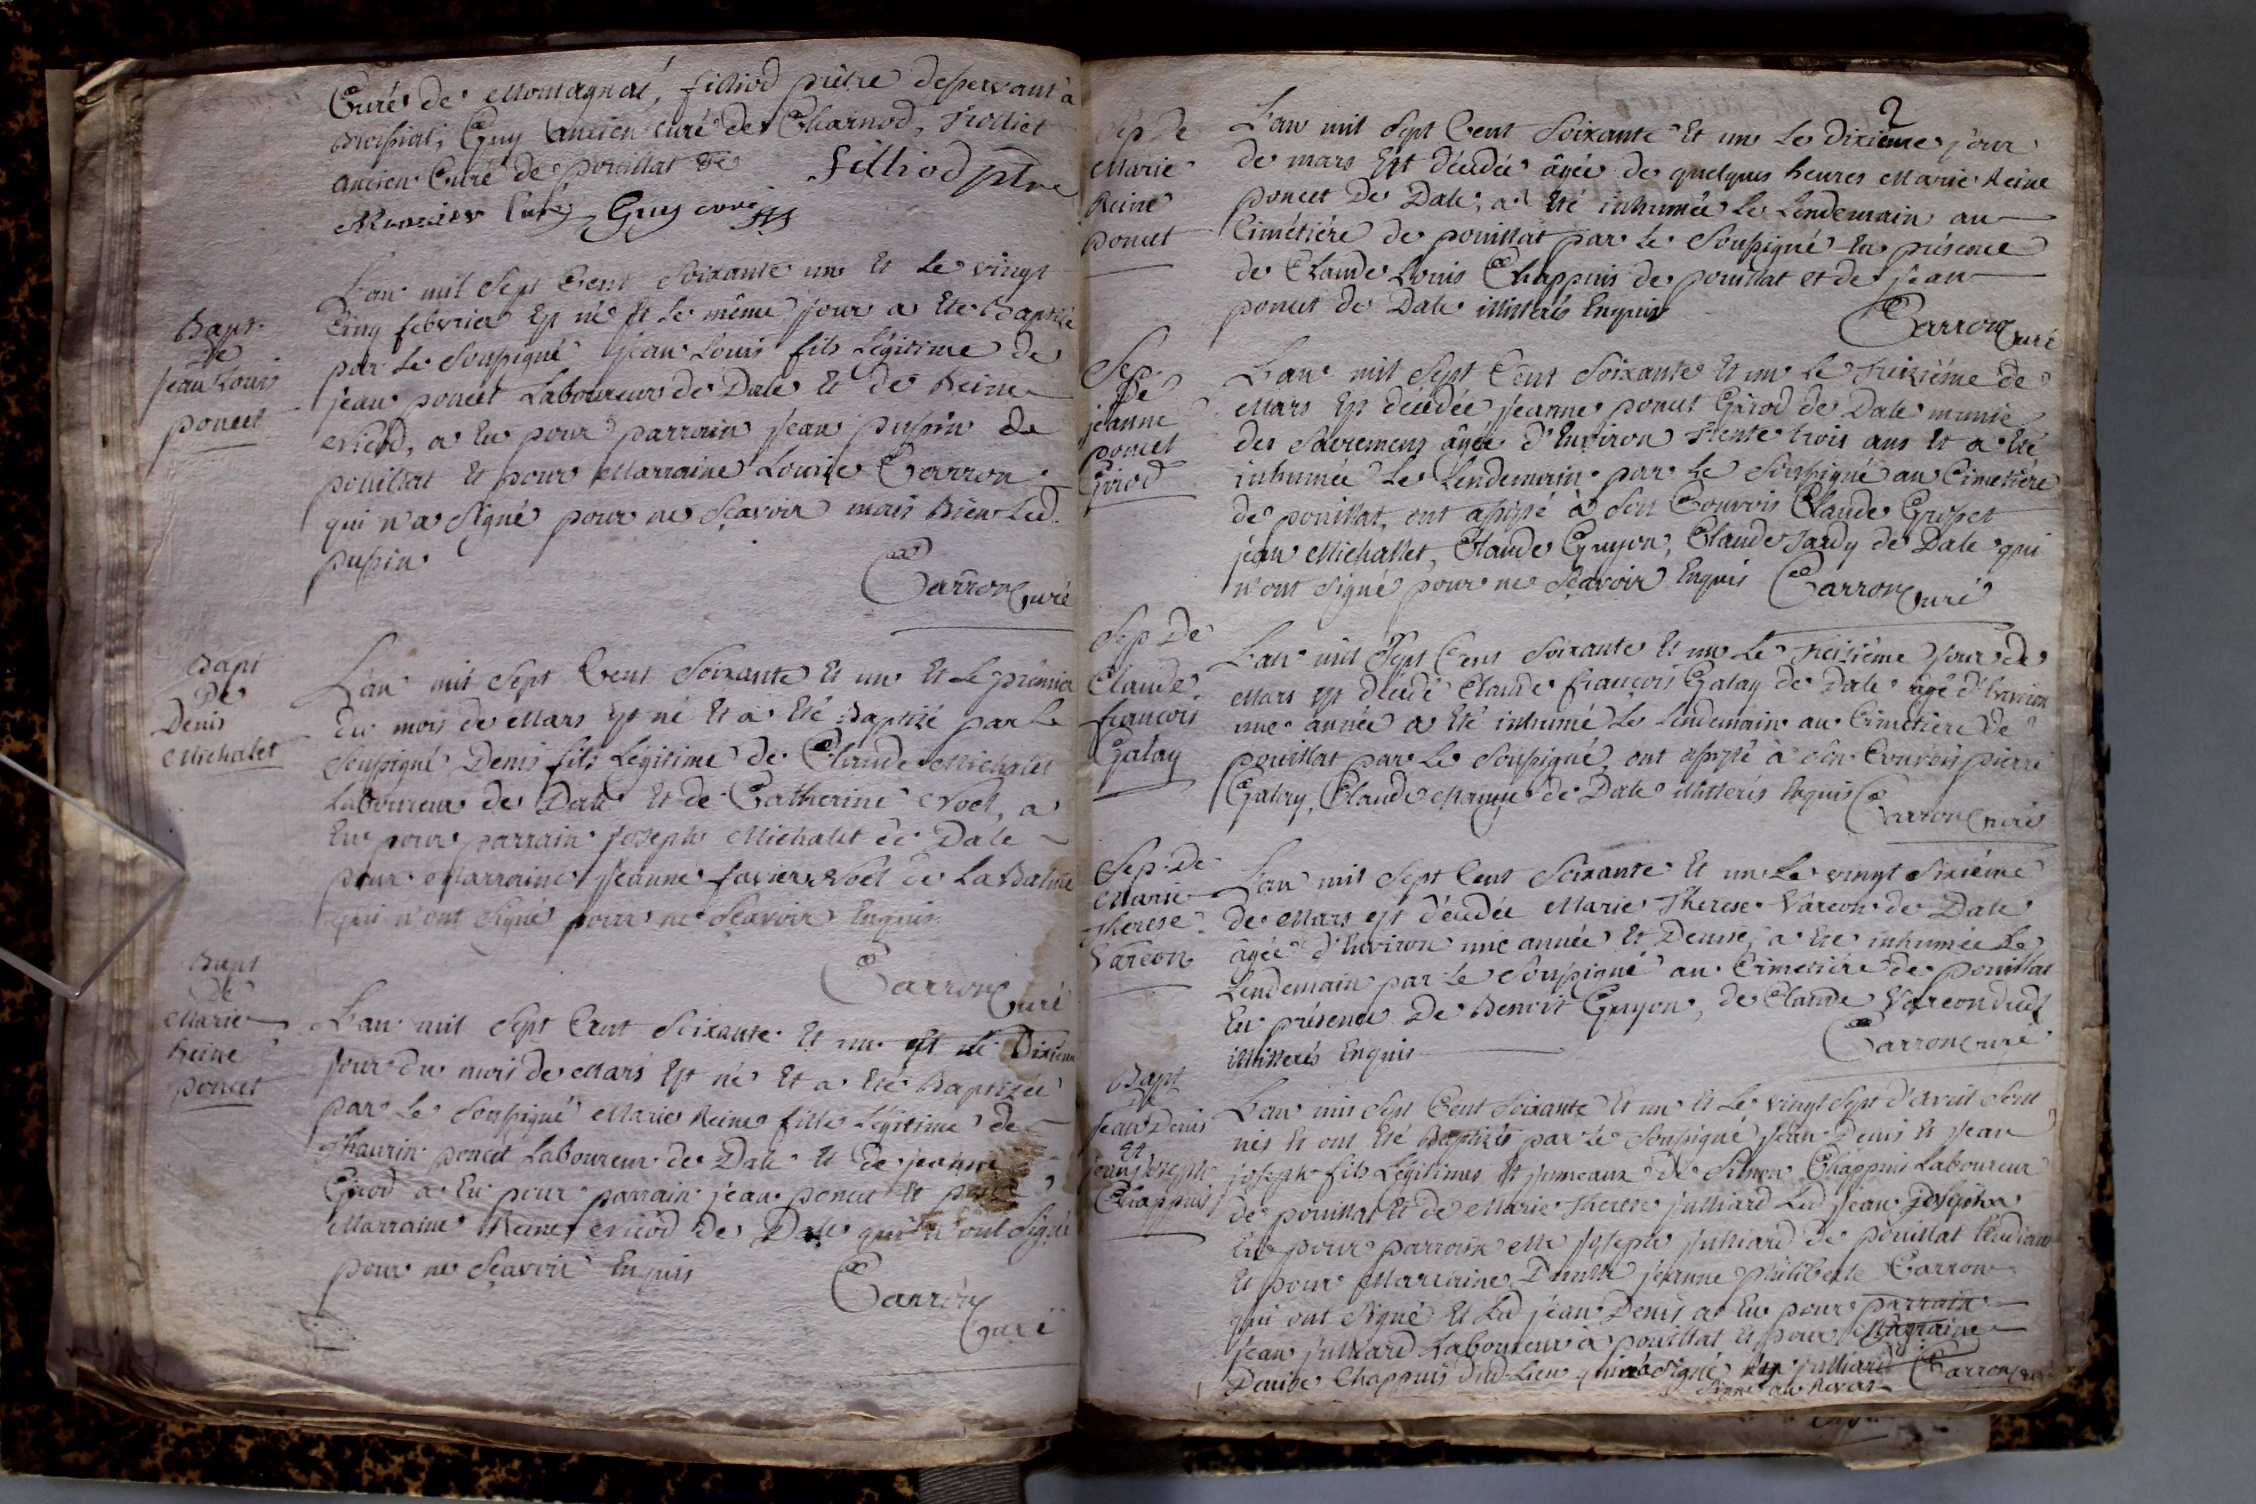 Curé de Montagnat, filliod prêtre desservant à
Guy ancien curé de Charnod, 
ancien Curé de pouillat &c filliod ptre
Curé, Guy curé
Bapt.
de
Jean Louis
poncet
L'an mil sept Cent soixante un et le vingt
Cinq febvrier Est né Et le même jour a Eté Baptisé
par le soussigné Jean Louis fils Légitime de
jean poncet Laboureur de Dale Et de Reine
Nicod, a Eu pour parrain Jean pupin de
pouillat Et pour Marraine Louise Carron
qui n'a signé pour ne sçavoir mais bien led.
pupin
Carron Curé
Bapt
De
Denis
Michalet
L'an mil sept Cent soixante Et un Et le premier
du mois de Mars Est né Et a Eté Baptisé par le
soussigné Denis fils Légitime de Claude Michalet
Laboureur de Dale Et de Catherine Noel, a
Eu pour parrain Joseph Michalet de Dale
pour Marraine Jeanne favier Noel de La Balme
qui n'ont signé pour ne sçavoir Enquis.
Carron Curé
Bapt
De
Marie
Reine
poncet
L'an mil sept Cent soixante Et un Et le Dixieme
jour du mois de Mars Est né Et a Eté Baptisée
par le soussigné Marie Reine fille Légitime de
Thaurin poncet Laboureur de Dale Et de jeanne
Girod a Eu pour parrain jean poncet Et pour
Marraine Reine Nicod de Dale qui n'ont signé
pour ne sçavoir Enquis
Carron
Curé
2
Sep De
Marie
Reine
poncet
L'an mil sept Cent soixante Et un le Dixième jour
de mars Est décédée âgée de quelques heures Marie Reine
poncet De Dale, a Eté inhumée le Lendemain au
Cimétière de pouillat par le soussigné En présence
de Claude Louis Chappuis de pouillat et de jean
poncet de Dale illitérés Enquis
Carron Curé
Sep.
De
jeanne
poncet
Girod
L'an mil sept Cent soixante Et un le Treizième de
Mars Est décédée jeanne poncet Girod de Dale munie
des sacremens âgée d'Environ trente trois ans Et a Eté
inhumée le Lendemain par le soussigné au Cimetière
de pouillat, ont assisté à son Convois Claude Grosset
jean Michallet, Claude Guyon, Claude Tardy de Dale qui
n'ont signé pour ne sçavoir Enquis Carron Curé
Sep De
Claude
françois
Galay
L'an mil sept Cens soixante Et un le Treizième jour de
Mars Est décédé Claude françois Galay de Dale âgé d'Environ
une année a Eté inhumé le Lendemain au Cimetière de
pouillat par le soussigné, ont assisté à son Convois pierre
Galay, Claude de Dale illitérés Enquis
Carron Curé
Sep. De
Marie
Therese
Vareon
L'an mil sept Cent soixante Et un le vingt sixième
de Mars est décédée Marie Therese Vareon de Dale
âgée d'Environ une année Et Demie, a Eté inhumée le
Lendemain par le soussigné au Cimetière de pouillat
En présence De Benoit Guyon, de Claude Vareon dud.
illitterés Enquis
Carron Curé
Bapt
De
Jean Denis
et
jean joseph
Chappuis
L'an mil sept Cent soixante Et un Et le vingt sept d'avril sont
nés Et ont Eté Baptisés par le soussigné Jean Denis Et Jean
joseph fils Légitimes Et jumeaux de Simon Chappuis Laboureur
de pouillat Et de Marie Therese julliard Led jean joseph a
Eu pour parrain Me joseph julliard de pouillat
Et pour Marraine Dlle jeanne philiberte Carron
qui ont signé Et Led jean Denis a Eu pour parrain
jean julliard Laboureur à pouillat Et pour Marraine
Denise Chappuis dud Lieu julliard Carron Curé
signé au Revers